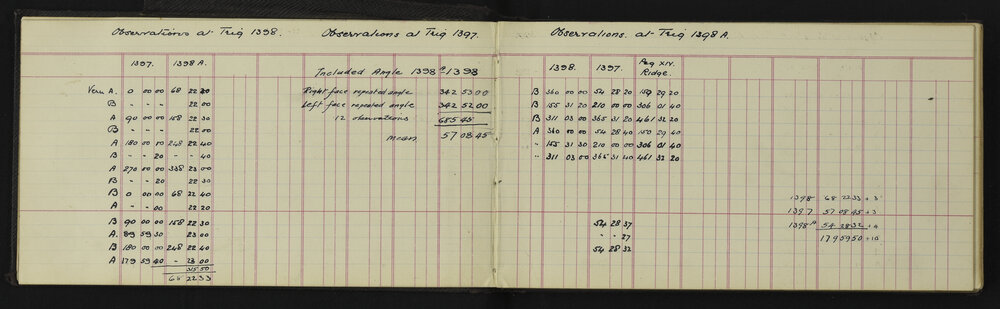 Observations at Trig 1398.
1397. 1398 A.
Vern A. 0 00 00 68 22 20
B - - 00 22 00
A 90 00 00 158 22 30
B 22 00
A 180 00 10 248 22 40
B - - 20 - - 40
A 270 00 00 338 23 00
B - - 20 22 30
B 0 00 00 68 22 40
A - - 00 22 20
B 90 00 00 158 22 30
A. 89 59 30 23 00
B 180 00 00 248 22 40
A 179 59 40 - 23 00
3150
68 22 33
Observations at Trig 1397.
Included Angle 1398A-1398
Right face repeated angle 342 53 00
Left face repeated angle 342 52 00
12 observations 685 45
mean 57 08 45
Observations. at Trig 1398 A.
1398. 1397. Peg XIV. Ridge.
B 360 00 00 54 28 20 150 29 20
B 155 31 20 210 00 00 306 01 40
B 311 03 00 365 31 20 461 32 20
A 360 00 00 54 28 40 150 29 40
" 155 31 30 210 00 00 306 01 40
" 311 03 00 365 31 40 461 32 20
54 28 37
- - 27
54 28 32
1398 68 22 33 + 3
1397 57 08 45 + 3
1398A 54 28 32 + 4
179 59 50 + 10